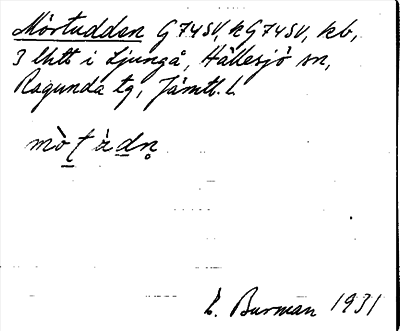 Mörtudden G 74 SV, k G 74 SV, kb,
3 lhtt i Ljungå, Hällesjö sn,
Ragunda tg, Jämtl. l.
mò̱ʈ àd̲n̥
E. Burman 1931